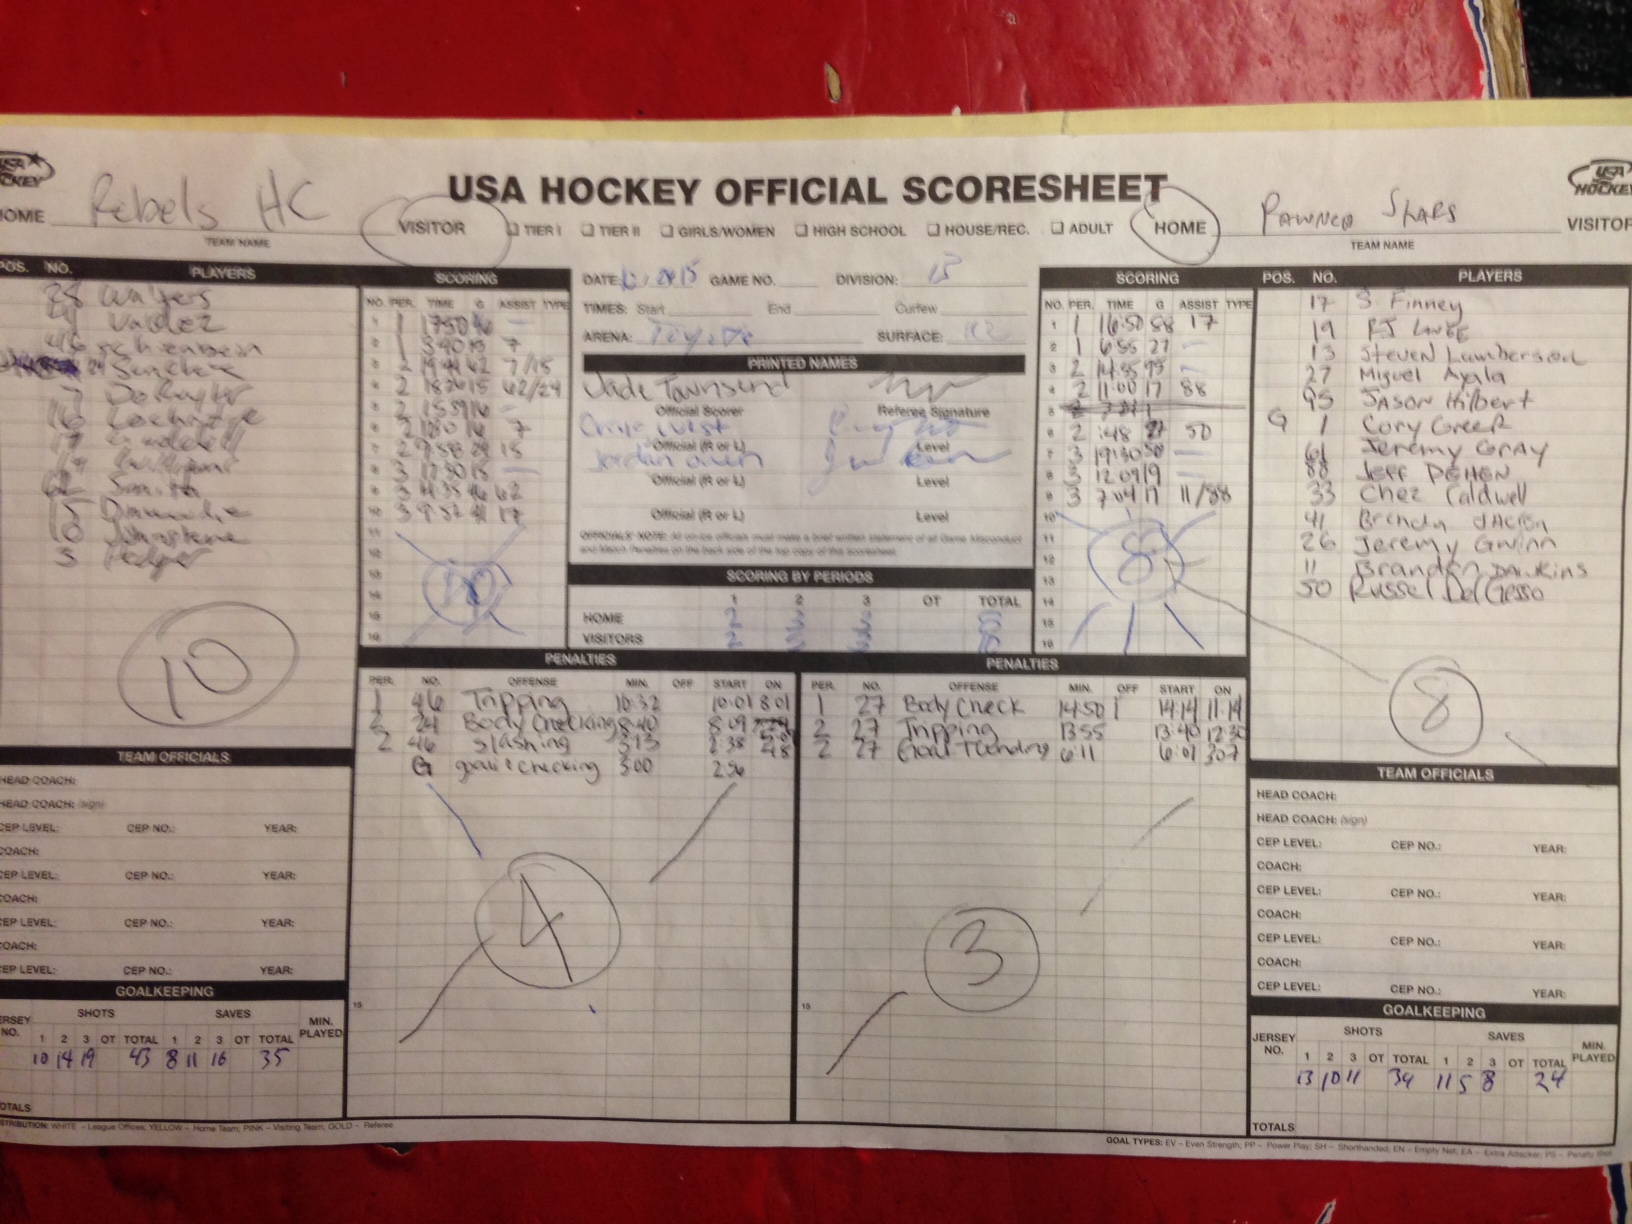 USA HOCKEY OFFICIAL SCORESHEET
USA HOCKEY
USA HOCKEY
HOME Rebels HC
TEAM NAME
VISITOR
TIER I TIER II GIRLS/WOMEN HIGH SCHOOL HOUSE/REC. ADULT
HOME
Pawned Stars VISITOR
TEAM NAME
POS. NO. PLAYERS
28 Walters
Valdez
46
24 Sanchez
7
16
17
62 Smith
15
10
3 Hedger
10
SCORING
NO. PER. TIME G ASSIST TYPE
1 1 17:50 46 —
2 1 15 7
3 2 19:44 62 7/15
4 2 15 62/24
5 2 15:59 16 —
6 2 16 7
7 2 9:58 24 15
8 3 17:30 15 —
9 3 46 62
10 3 9:52 17
11
12
13
14
15
16
10
DATE: GAME NO. DIVISION: B
TIMES: Start End Curfew
ARENA: Toyota SURFACE:
PRINTED NAMES
Jade Townsend
Official Scorer Referee Signature
West
Official (R or L) Level
Jordan
Official (R or L) Level
Official (R or L) Level
OFFICIALS' NOTE: All on-ice officials must make a brief written statement of all Game Misconduct
and Match Penalties on the back side of the top copy of this scoresheet.
SCORING BY PERIODS
1 2 3 OT TOTAL
HOME 2 3 3 8
VISITORS 2
SCORING
NO. PER. TIME G ASSIST TYPE
1 1 16:50 88 17
2 1 6:55 27 —
3 2 14:55 95 —
4 2 11:00 17 88
5 2
6 2 :48 27 50
7 3 19:30 50 —
8 3 12:09 19 —
9 3 7:04 17 11/88
10
11
12
13
14
15
16
8
POS. NO. PLAYERS
17 S. Finney
19 RJ
13 Steven Lamberson
27 Miguel Ayala
95 Jason Hilbert
G 1 Cory Greer
61 Jeremy Gray
88 Jeff Dehen
33 Chez Caldwell
41
26 Jeremy Gwinn
11 Branden Dawkins
50 Russel DelGesso
8
PENALTIES
PER. NO. OFFENSE MIN. OFF START ON
1 46 Tripping 10:32 10:01 8:01
2 24 Body Checking 8:40 8:09
2 46 Slashing 3:13 2:38
G goalie checking 3:00 2:56
4
15
PENALTIES
PER. NO. OFFENSE MIN. OFF START ON
1 27 Body Check 14:50 14:14 11:14
2 27 Tripping 13:55 13:40 12:30
2 27 Goal Tending 6:11 6:07 3:07
3
15
TEAM OFFICIALS
HEAD COACH:
HEAD COACH: (sign)
CEP LEVEL: CEP NO.: YEAR:
COACH:
CEP LEVEL: CEP NO.: YEAR:
COACH:
CEP LEVEL: CEP NO.: YEAR:
COACH:
CEP LEVEL: CEP NO.: YEAR:
GOALKEEPING
JERSEY NO. SHOTS SAVES MIN. PLAYED
1 2 3 OT TOTAL 1 2 3 OT TOTAL
10 14 19 43 8 11 16 35
TOTALS
TEAM OFFICIALS
HEAD COACH:
HEAD COACH: (sign)
CEP LEVEL: CEP NO.: YEAR:
COACH:
CEP LEVEL: CEP NO.: YEAR:
COACH:
CEP LEVEL: CEP NO.: YEAR:
COACH:
CEP LEVEL: CEP NO.: YEAR:
GOALKEEPING
JERSEY NO. SHOTS SAVES MIN. PLAYED
1 2 3 OT TOTAL 1 2 3 OT TOTAL
13 10 11 34 11 5 8 24
TOTALS
DISTRIBUTION: WHITE – League Offices; YELLOW – Home Team; PINK – Visiting Team; GOLD – Referee
GOAL TYPES: EV – Even Strength; PP – Power Play; SH – Shorthanded; EN – Empty Net; EA – Extra Attacker; PS – Penalty Shot